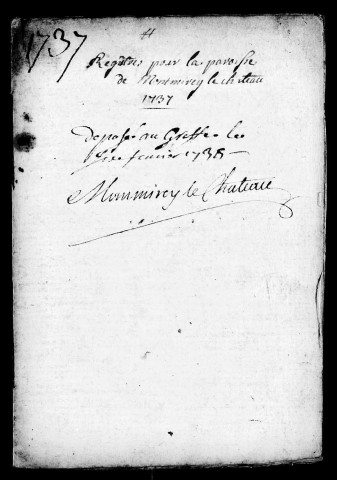 1737
Registres pour la paroisse
de Montmirey le chateau
1737
Deposé au Greffe le
fevrier 1738
Montmirey le Chateau